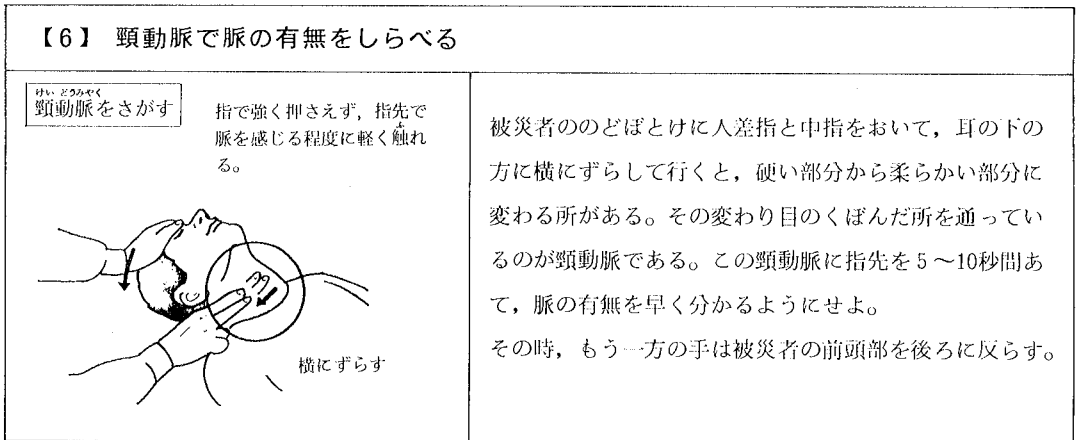 【6】 頸動脈で脈の有無をしらべる
けいどうみゃく
頸動脈をさがす
指で強く押さえず，指先で
脈を感じる程度に軽く触れ
る。
ふ
横にずらす
被災者ののどぼとけに人差指と中指をおいて，耳の下の
方に横にずらして行くと，硬い部分から柔らかい部分に
変わる所がある。その変わり目のくぼんだ所を通ってい
るのが頸動脈である。この頸動脈に指先を5～10秒間あ
て，脈の有無を早く分かるようにせよ。
その時，もう一方の手は被災者の前頭部を後ろに反らす。